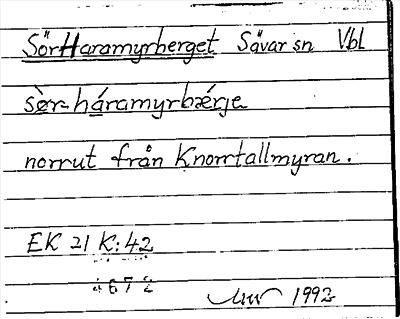 SörHaramyrberget Sävar sn Vbl
sèr-háramyrbærje
norrut från Knorrtallmyran.
EK 21 K:42
4672
1992